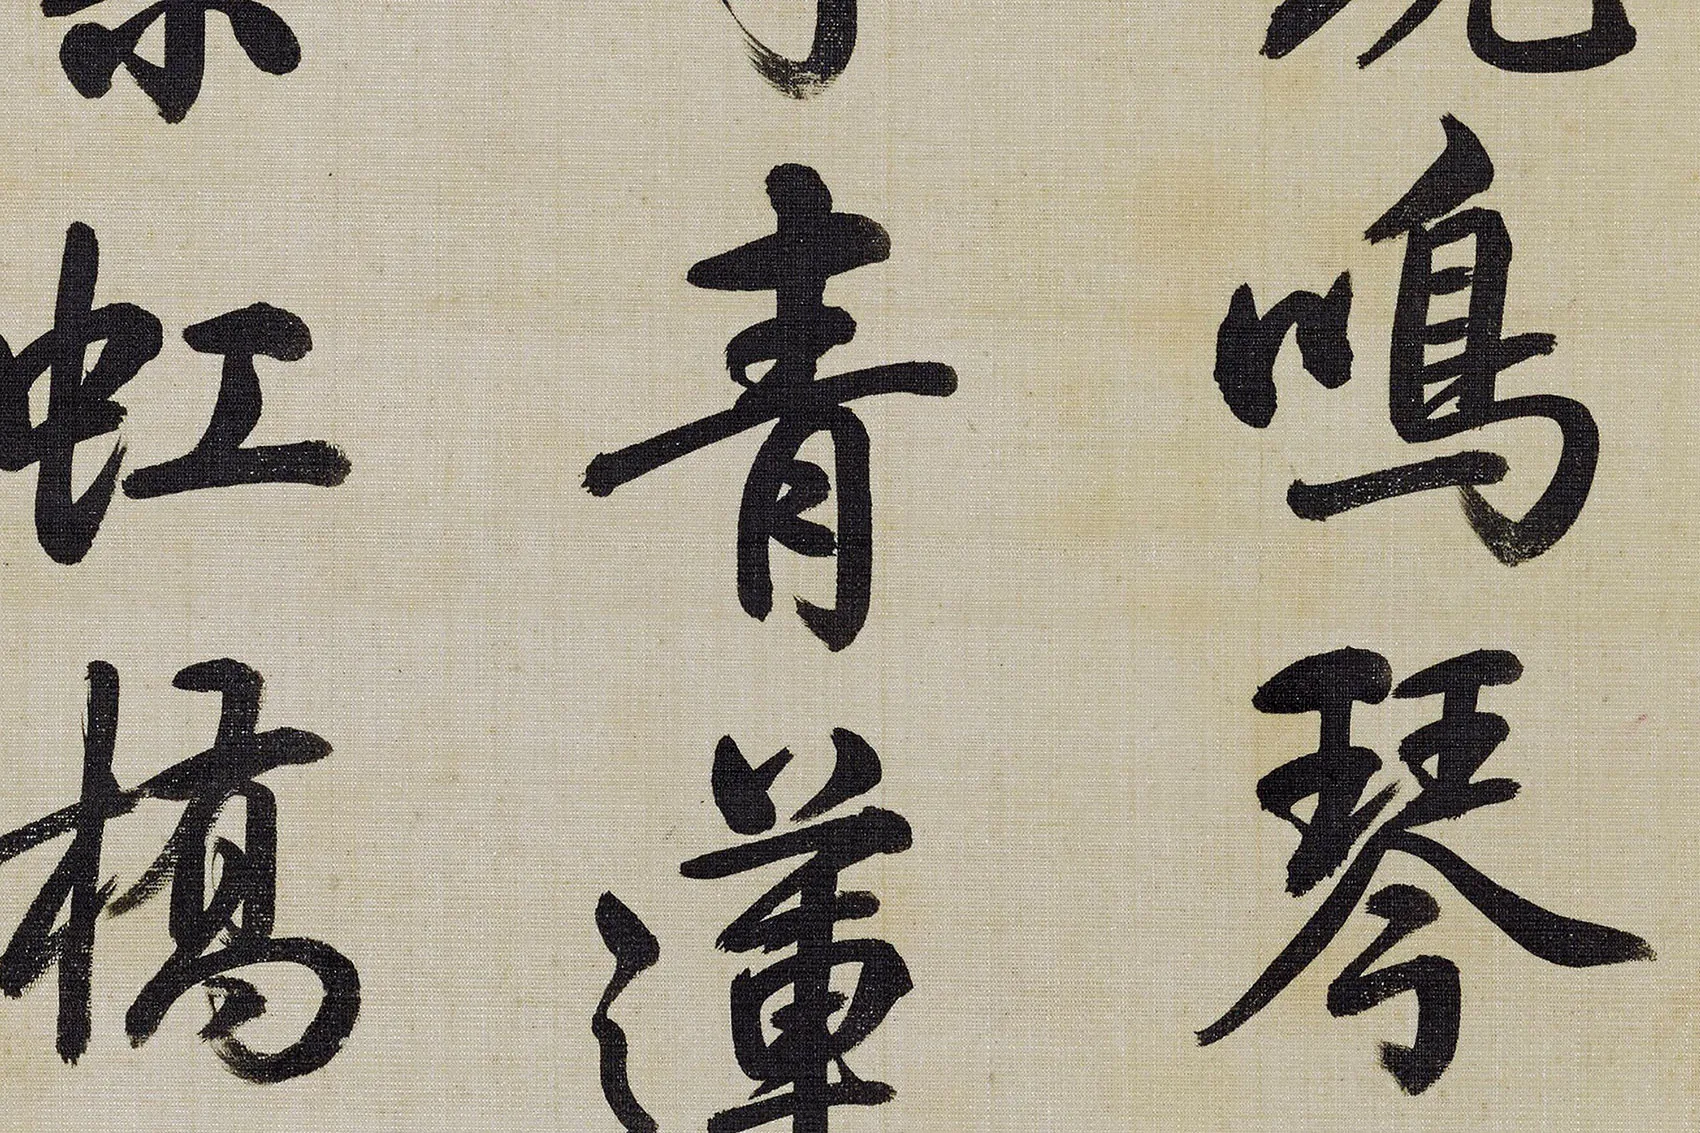 鳴琴
青蓮
虹橋